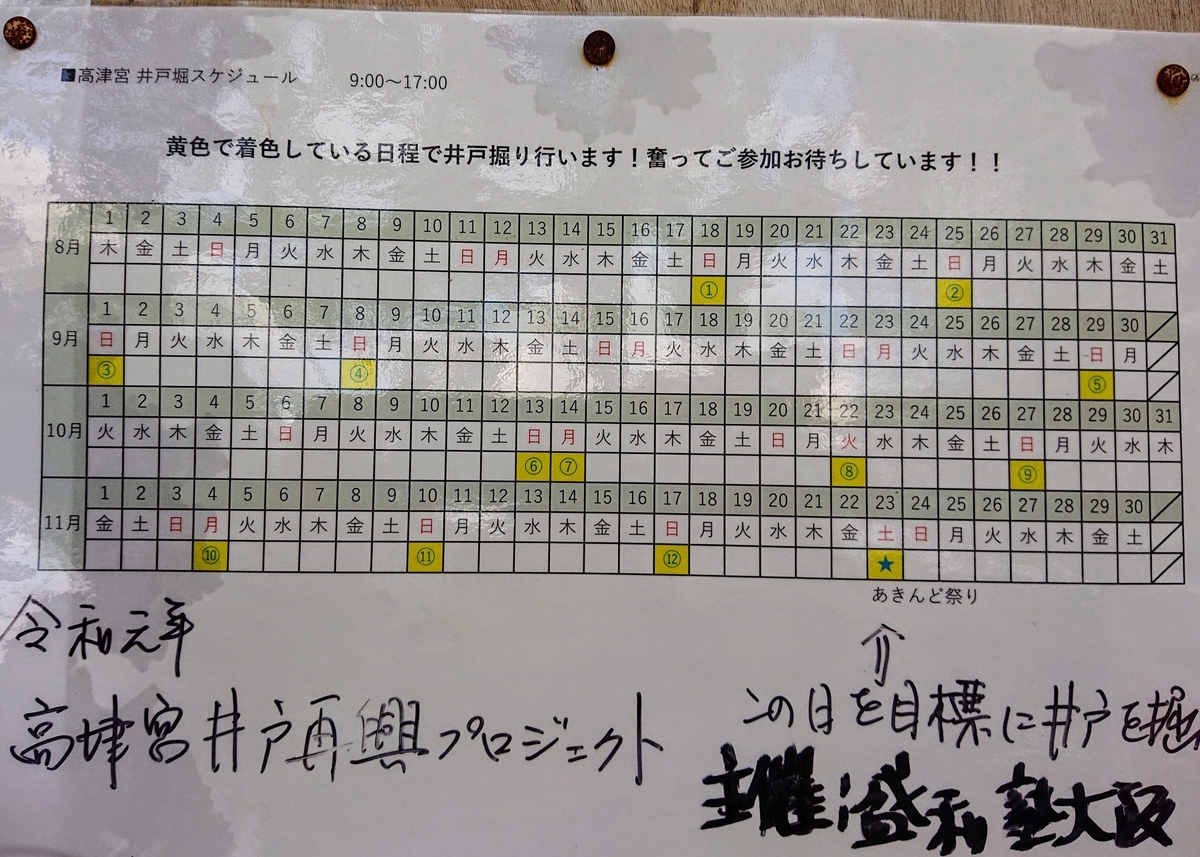 ■高津宮 井戸堀スケジュール 9:00～17:00
黄色で着色している日程で井戸掘り行います！奮ってご参加お待ちしています！！
1 2 3 4 5 6 7 8 9 10 11 12 13 14 15 16 17 18 19 20 21 22 23 24 25 26 27 28 29 30 31
8月 木 金 土 日 月 火 水 木 金 土 日 月 火 水 木 金 土 日 月 火 水 木 金 土 日 月 火 水 木 金 土
① ②
1 2 3 4 5 6 7 8 9 10 11 12 13 14 15 16 17 18 19 20 21 22 23 24 25 26 27 28 29 30
9月 日 月 火 水 木 金 土 日 月 火 水 木 金 土 日 月 火 水 木 金 土 日 月 火 水 木 金 土 日 月
③ ④ ⑤
1 2 3 4 5 6 7 8 9 10 11 12 13 14 15 16 17 18 19 20 21 22 23 24 25 26 27 28 29 30 31
10月 火 水 木 金 土 日 月 火 水 木 金 土 日 月 火 水 木 金 土 日 月 火 水 木 金 土 日 月 火 水 木
⑥ ⑦ ⑧ ⑨
1 2 3 4 5 6 7 8 9 10 11 12 13 14 15 16 17 18 19 20 21 22 23 24 25 26 27 28 29 30
11月 金 土 日 月 火 水 木 金 土 日 月 火 水 木 金 土 日 月 火 水 木 金 土 日 月 火 水 木 金 土
⑩ ⑪ ⑫ ★
あきんど祭り
令和元年
⇑
高津宮井戸再興プロジェクト
この日を目標に井戸を掘
主催:盛和塾大阪